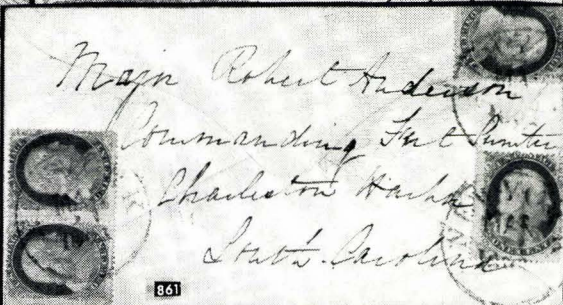 Major Robert Anderson
Commanding Fort Sumter
Charleston Harbor
South Carolina
861